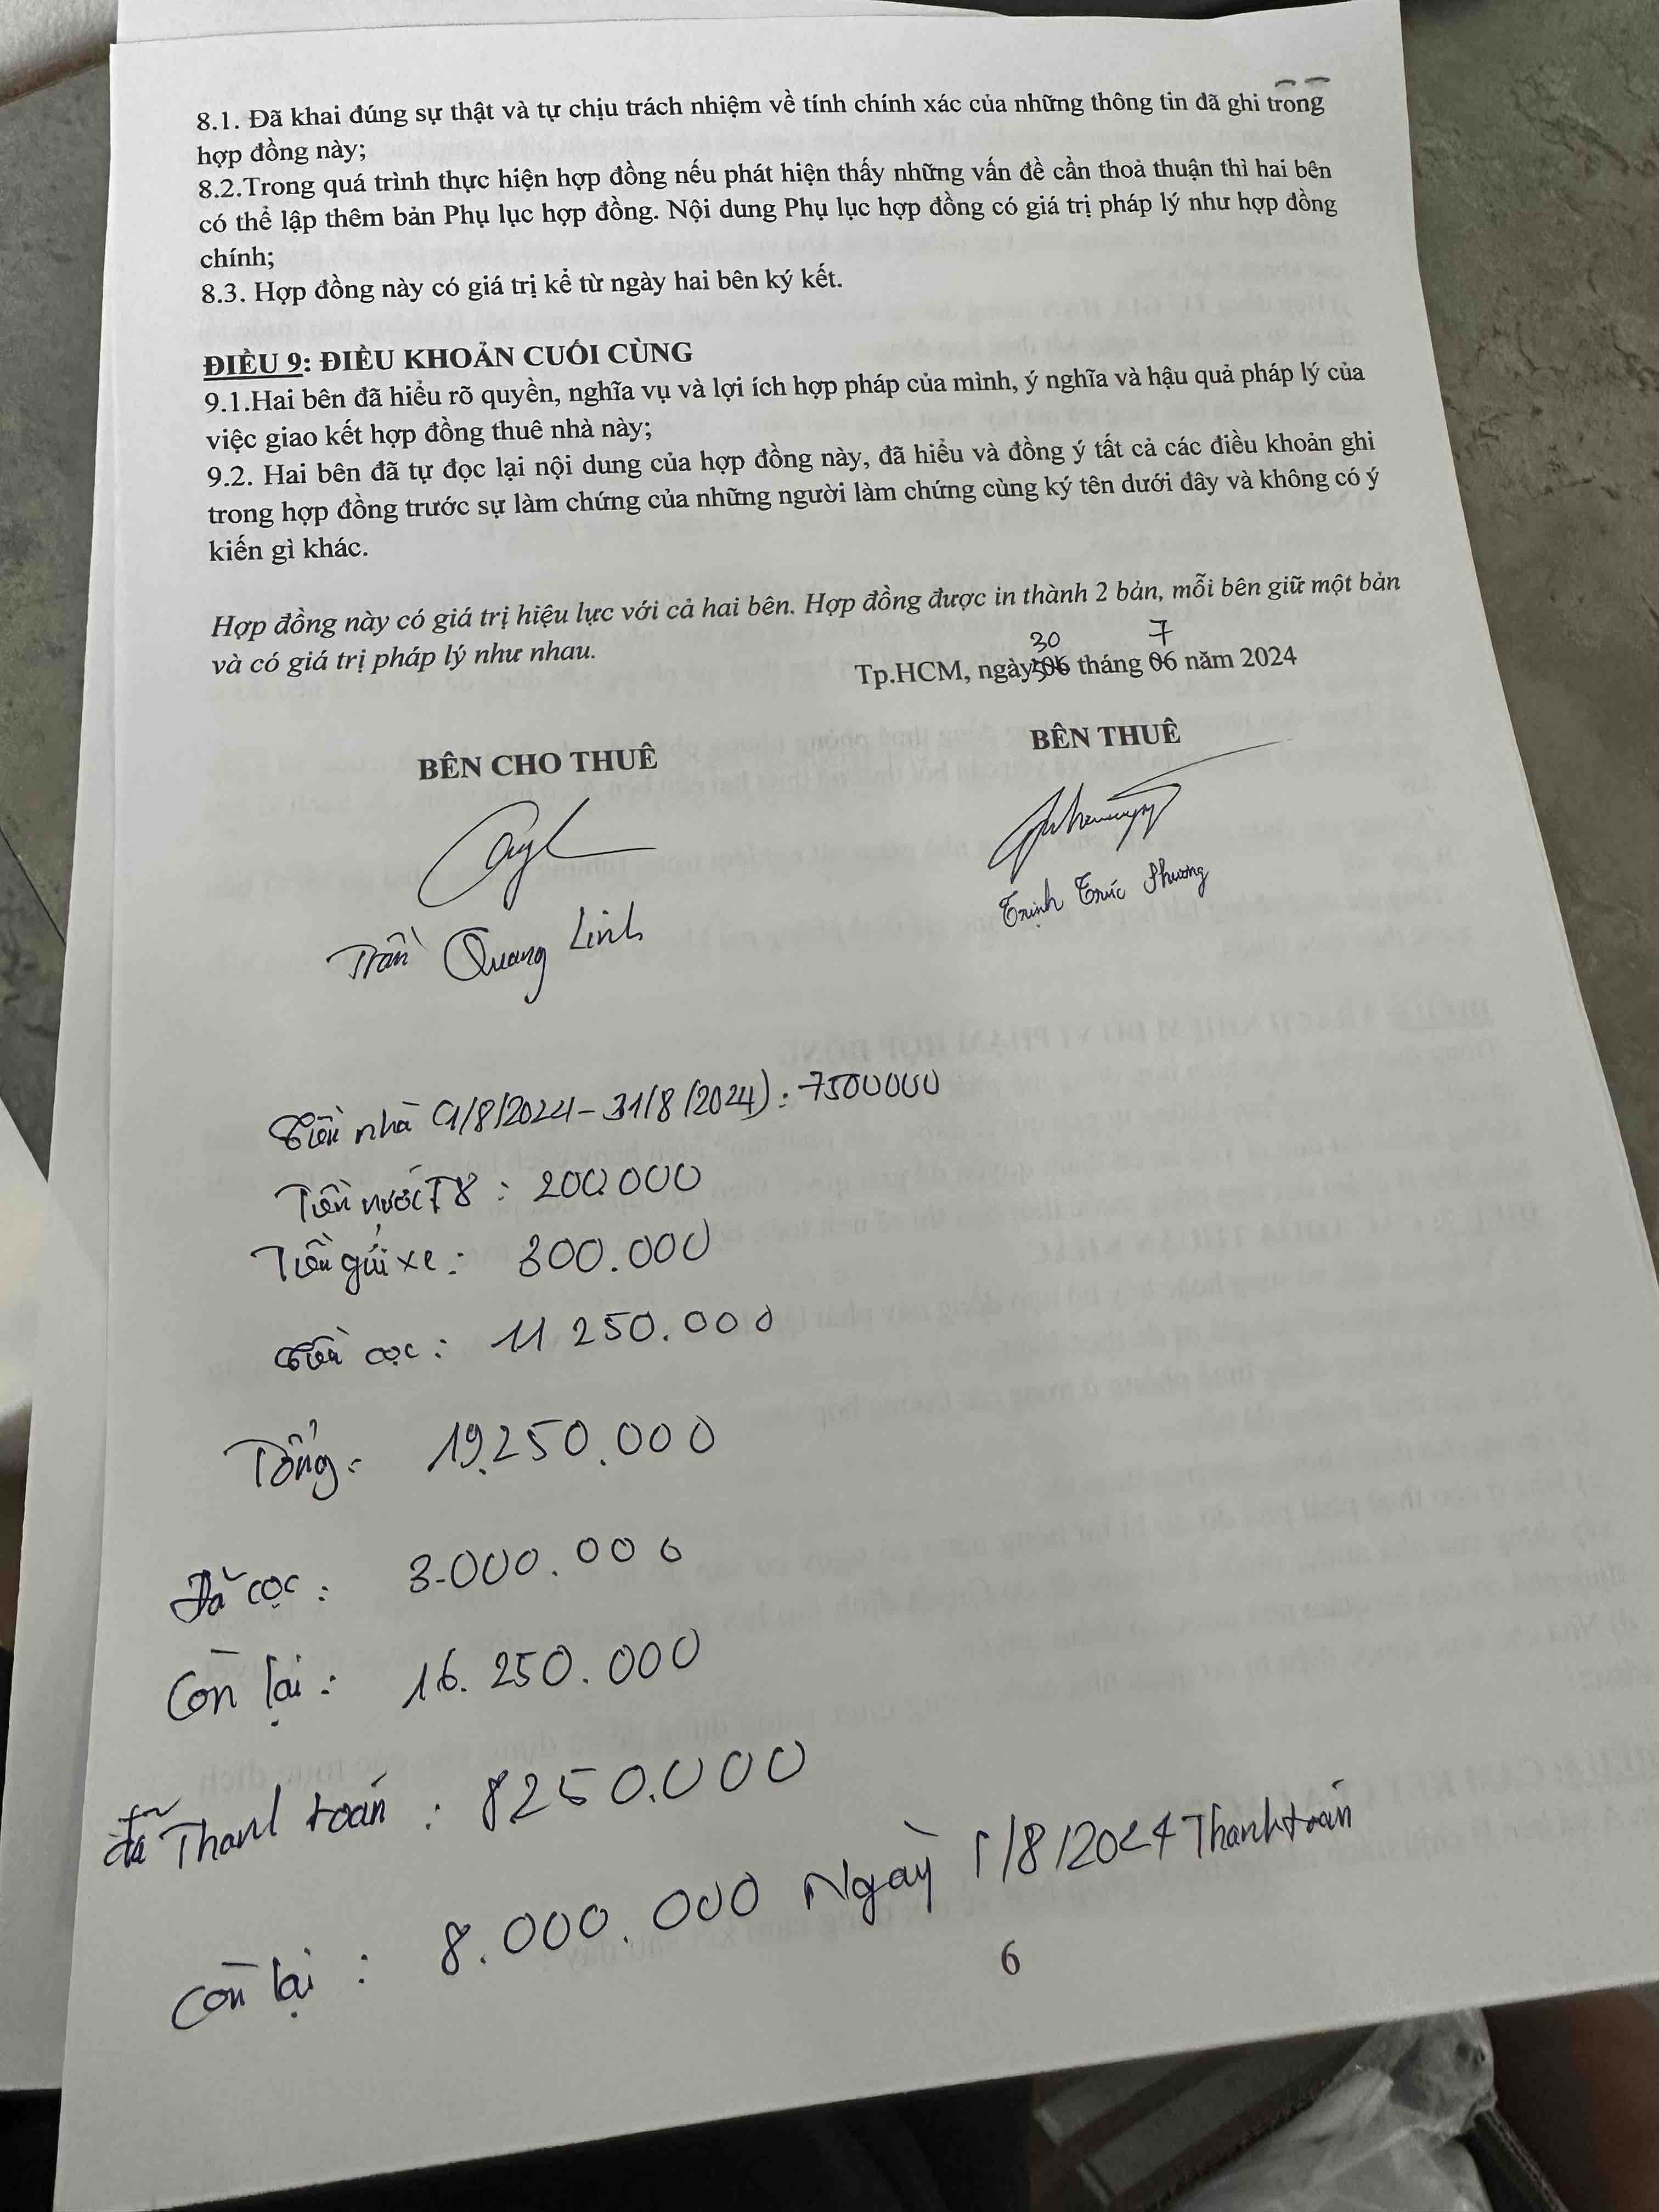 8.1. Đã khai đúng sự thật và tự chịu trách nhiệm về tính chính xác của những thông tin đã ghi trong
hợp đồng này;
8.2.Trong quá trình thực hiện hợp đồng nếu phát hiện thấy những vấn đề cần thoả thuận thì hai bên
có thể lập thêm bản Phụ lục hợp đồng. Nội dung Phụ lục hợp đồng có giá trị pháp lý như hợp đồng
chính;
8.3. Hợp đồng này có giá trị kể từ ngày hai bên ký kết.
ĐIỀU 9: ĐIỀU KHOẢN CUỐI CÙNG
9.1.Hai bên đã hiểu rõ quyền, nghĩa vụ và lợi ích hợp pháp của mình, ý nghĩa và hậu quả pháp lý của
việc giao kết hợp đồng thuê nhà này;
9.2. Hai bên đã tự đọc lại nội dung của hợp đồng này, đã hiểu và đồng ý tất cả các điều khoản ghi
trong hợp đồng trước sự làm chứng của những người làm chứng cùng ký tên dưới đây và không có ý
kiến gì khác.
Hợp đồng này có giá trị hiệu lực với cả hai bên. Hợp đồng được in thành 2 bản, mỗi bên giữ một bản
và có giá trị pháp lý như nhau.
30 7
Tp.HCM, ngày tháng 06 năm 2024
BÊN CHO THUÊ
BÊN THUÊ
Trần Quang Linh
Trịnh Trúc Phương
Tiền nhà (1/8/2024 - 31/8/2024) : 7500000
Tiền nước T8 : 200.000
Tiền gửi xe : 300.000
Tiền cọc : 11 250.000
Tổng : 19.250.000
Đã cọc : 3.000.000
Còn lại : 16.250.000
đã Thanh toán : 8250.000
Còn lại : 8.000.000 Ngày 1/8/2024 Thanh toán
6